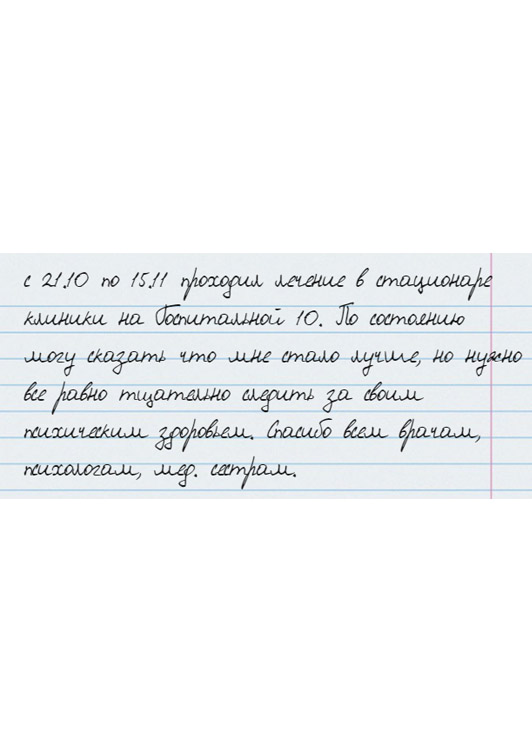 с 21.10 по 15.11 проходил лечение в стационаре
клиники на Госпитальной 10. По состоянию
могу сказать что мне стало лучше, но нужно
все равно тщательно следить за своим
психическим здоровьем. Спасибо всем врачам,
психологам, мед. сестрам.